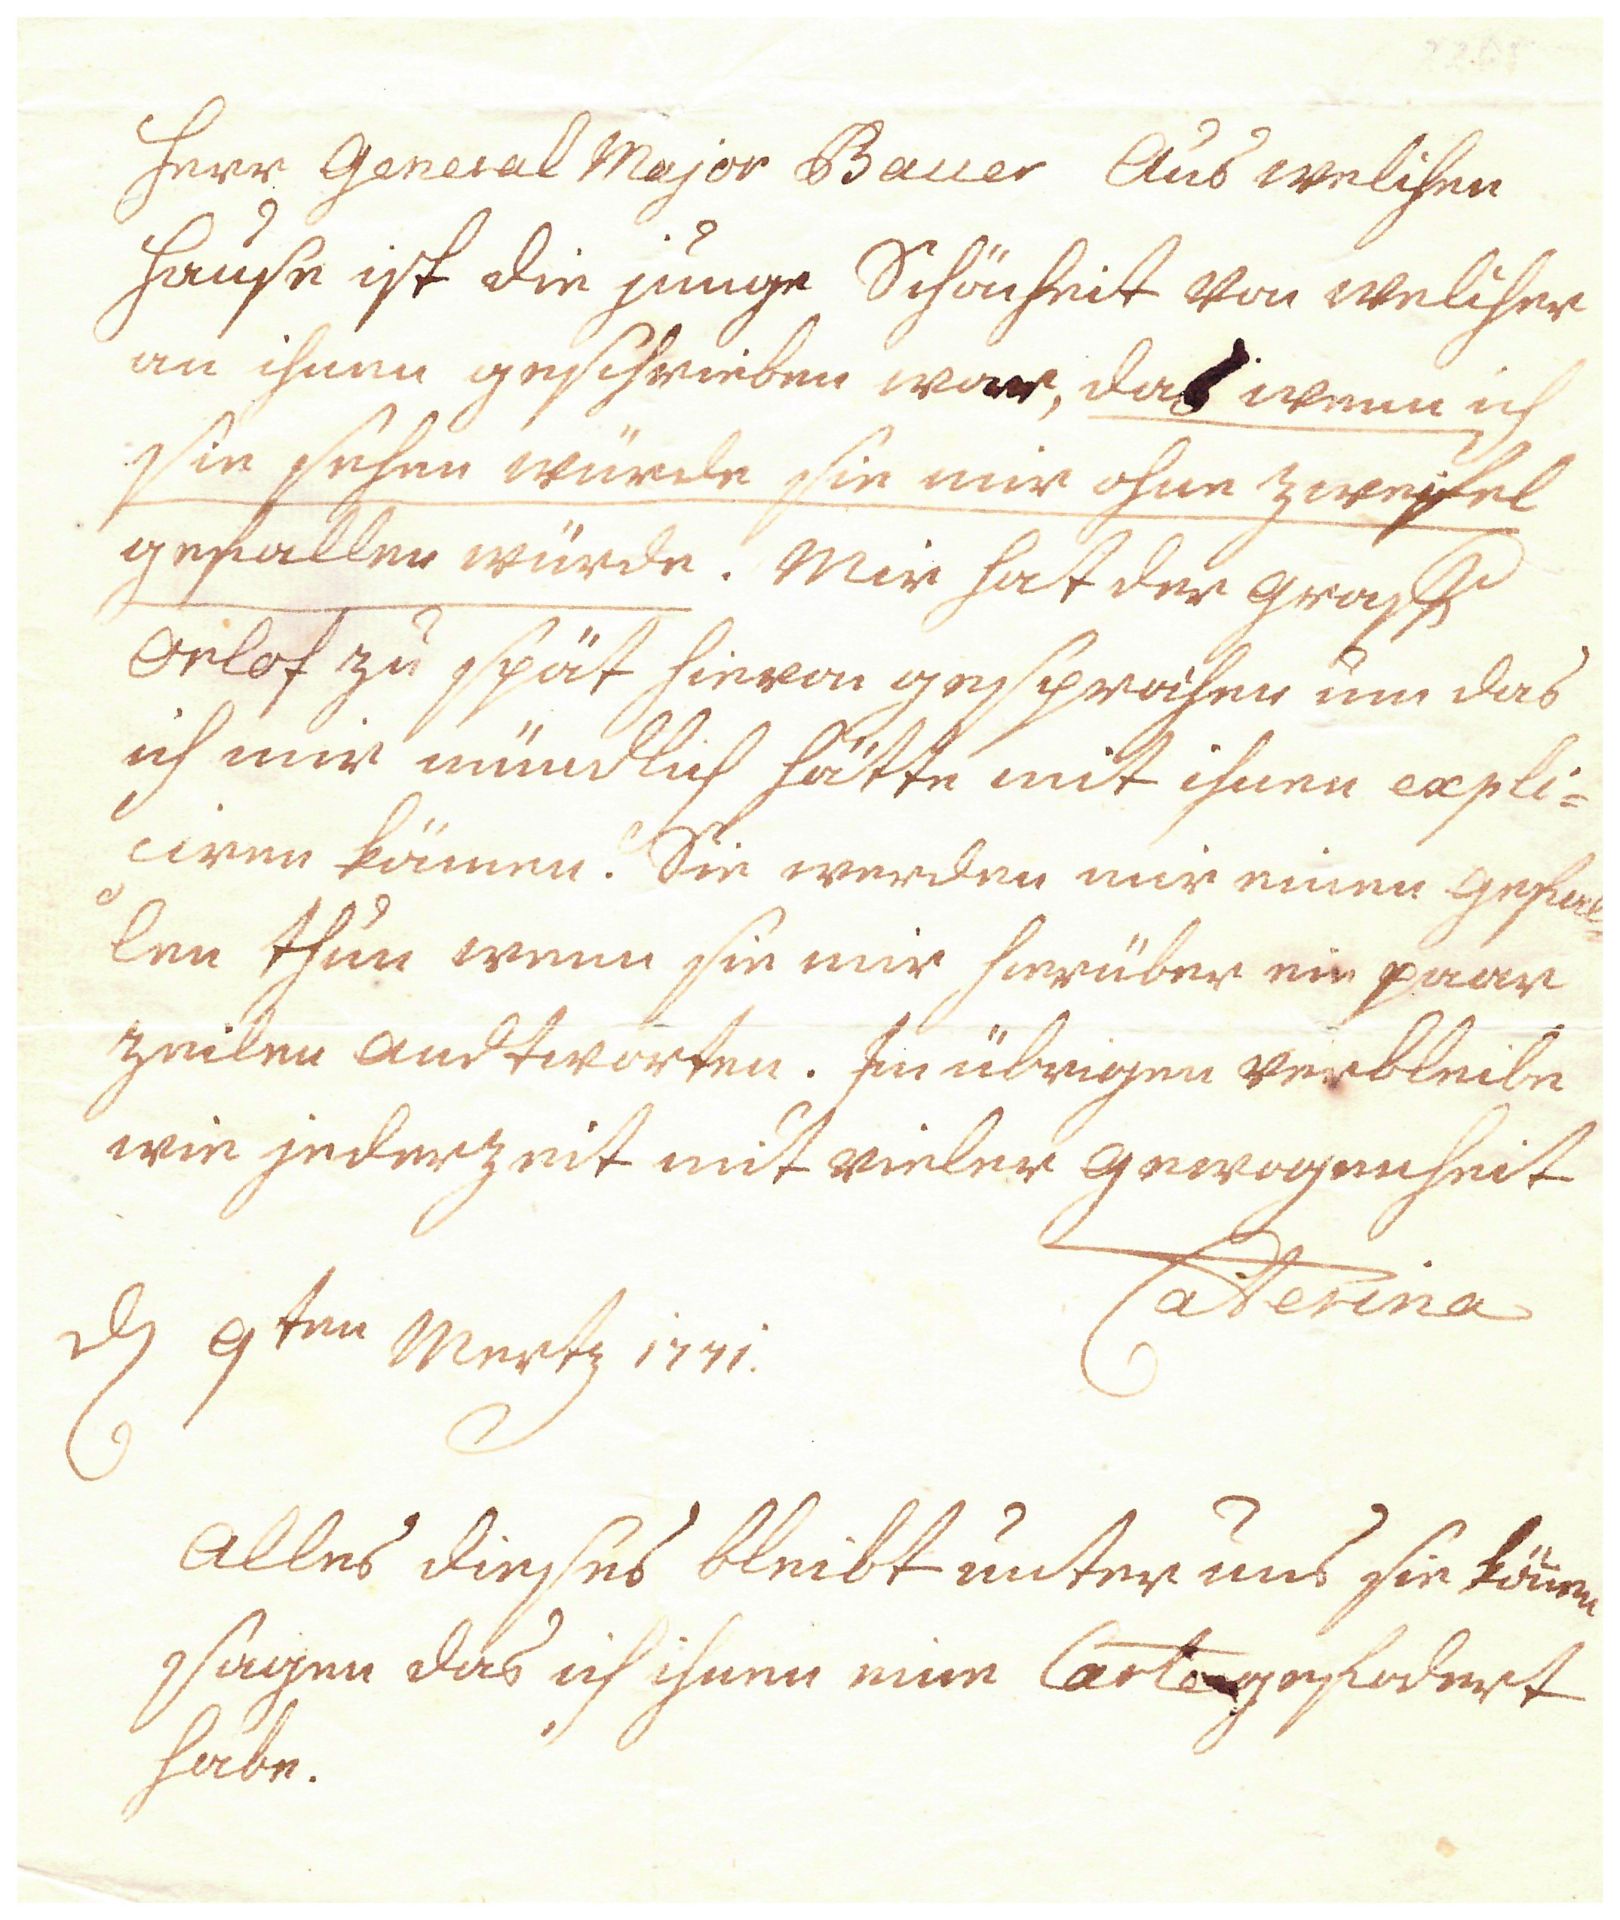 Herr General Major Bauer Aus welchen
Hause ist die junge Schönheit von welcher
an ihnen geschrieben war, das wenn ich
sie sehen würde sie mir ohne zweifel
gefallen würde. Mir hat der Graff
Orlof zu spät hievon gesprochen um das
ich mir mündlich hätte mit ihnen expli=
ciren können. Sie werden mir einen gefal=
len thun wenn sie mir hierüber ein paar
zeilen andtworten. Im übrigen verbleibe
wie jederzeit mit vieler gewogenheit
Caterina
d 9ten Mertz 1771.
Alles dieses bleibt unter uns sie können
sagen das ich ihnen eine Carte gefodert
habe.